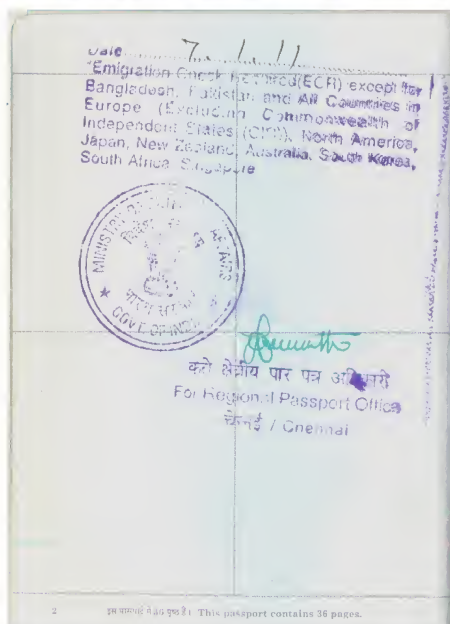 Date 7.1.11
"Emigration Check Required(ECR) except for
Bangladesh, Pakistan and All Countries in
Europe (Excluding Commonwealth of
Independent States (CIS)), North America,
Japan, New Zealand, Australia, South Korea,
South Africa, Singapore
MINISTRY OF AFFAIRS
भारत सरकार
GOVT. OF INDIA
कृते क्षेत्रीय पार पत्र अधिकारी
For Regional Passport Office
चेन्नई / Chennai
2 इस पासपोर्ट में 36 पृष्ठ हैं। This passport contains 36 pages.